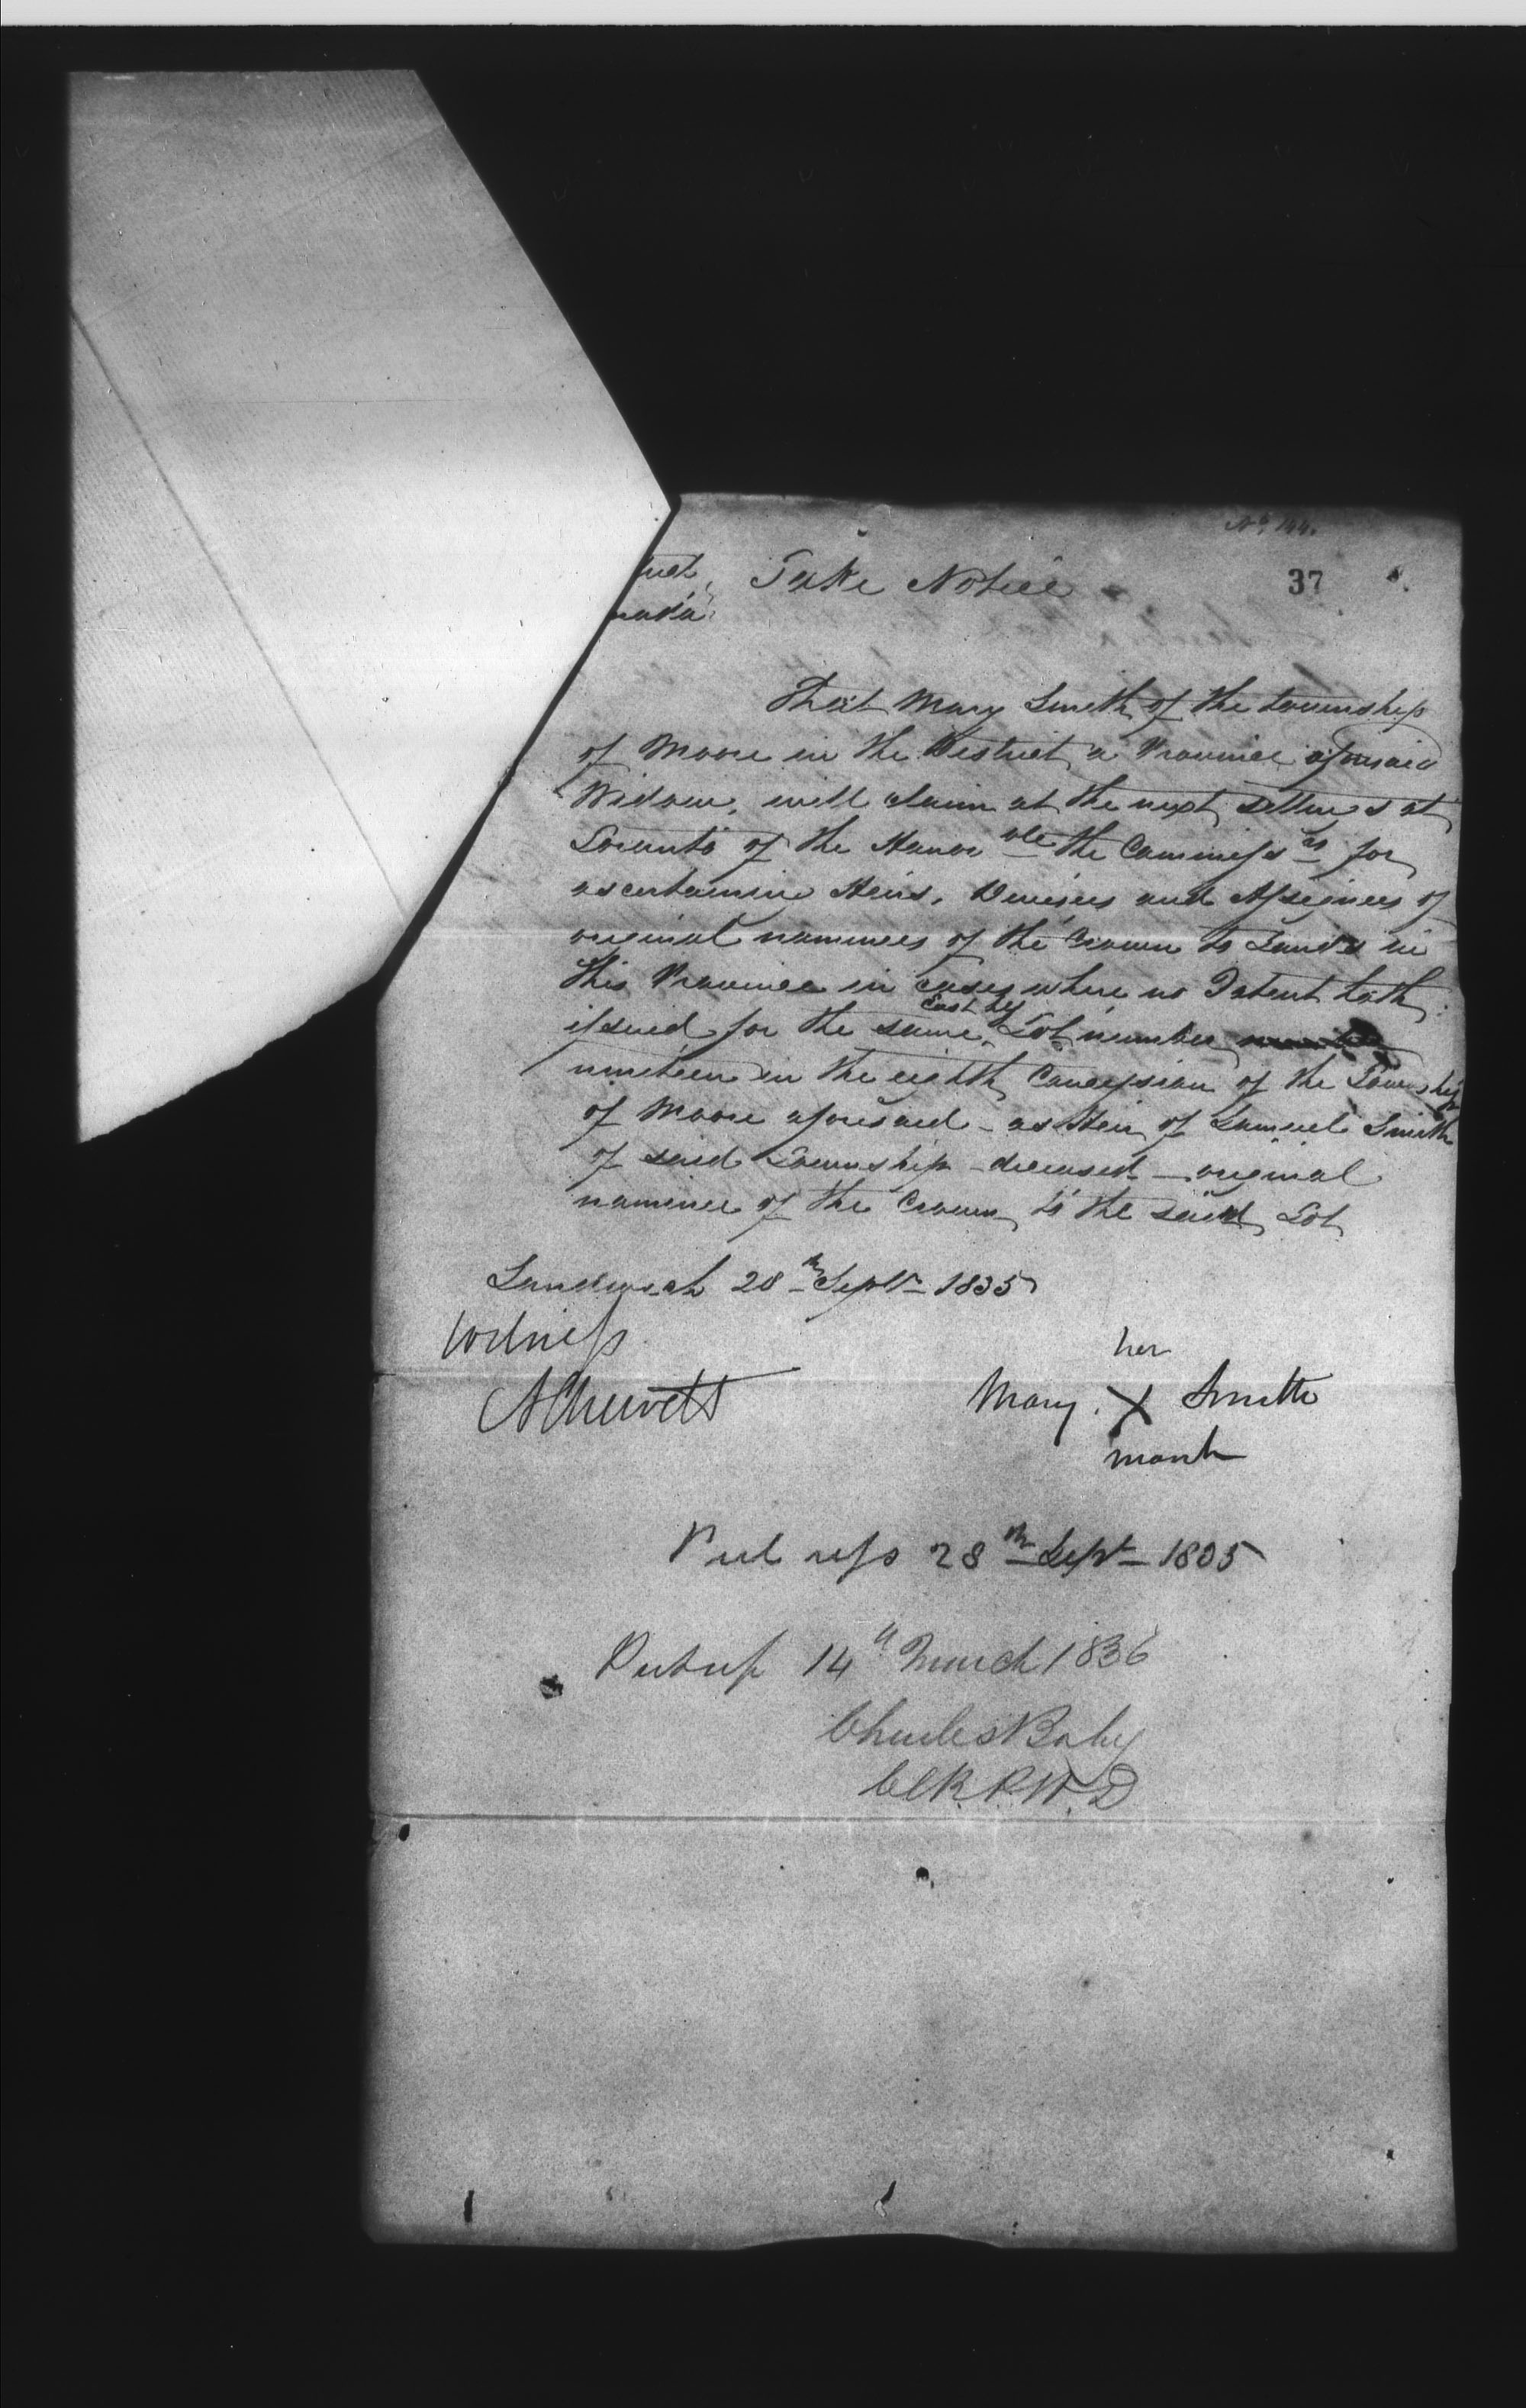 No. 144.
37
trict, Take Notice
nada
That Mary Smith of the township
of Moore in the District & Province aforesaid
Widow, will claim at the next setting at
Toronto of the Honorable the Commissrs for
ascertaining Heirs, Devisees and Assignees of
original nominees of the Crown to Lands in
this Province in cases where no Patent hath
issued for the same, East hf Lot number
nineteen in the eighth Concession of the Township
of Moore aforesaid - as Heir of Samuel Smith
of said Township - deceased - original
nominee of the Crown to the said Lot
Sandwich 28th Sept 1835
Witness
her
AChewett Mary X Smith
mark
Put up 28th Sept 1835
Put up 14th March 1836
Charles Baby
Clk P. W. D